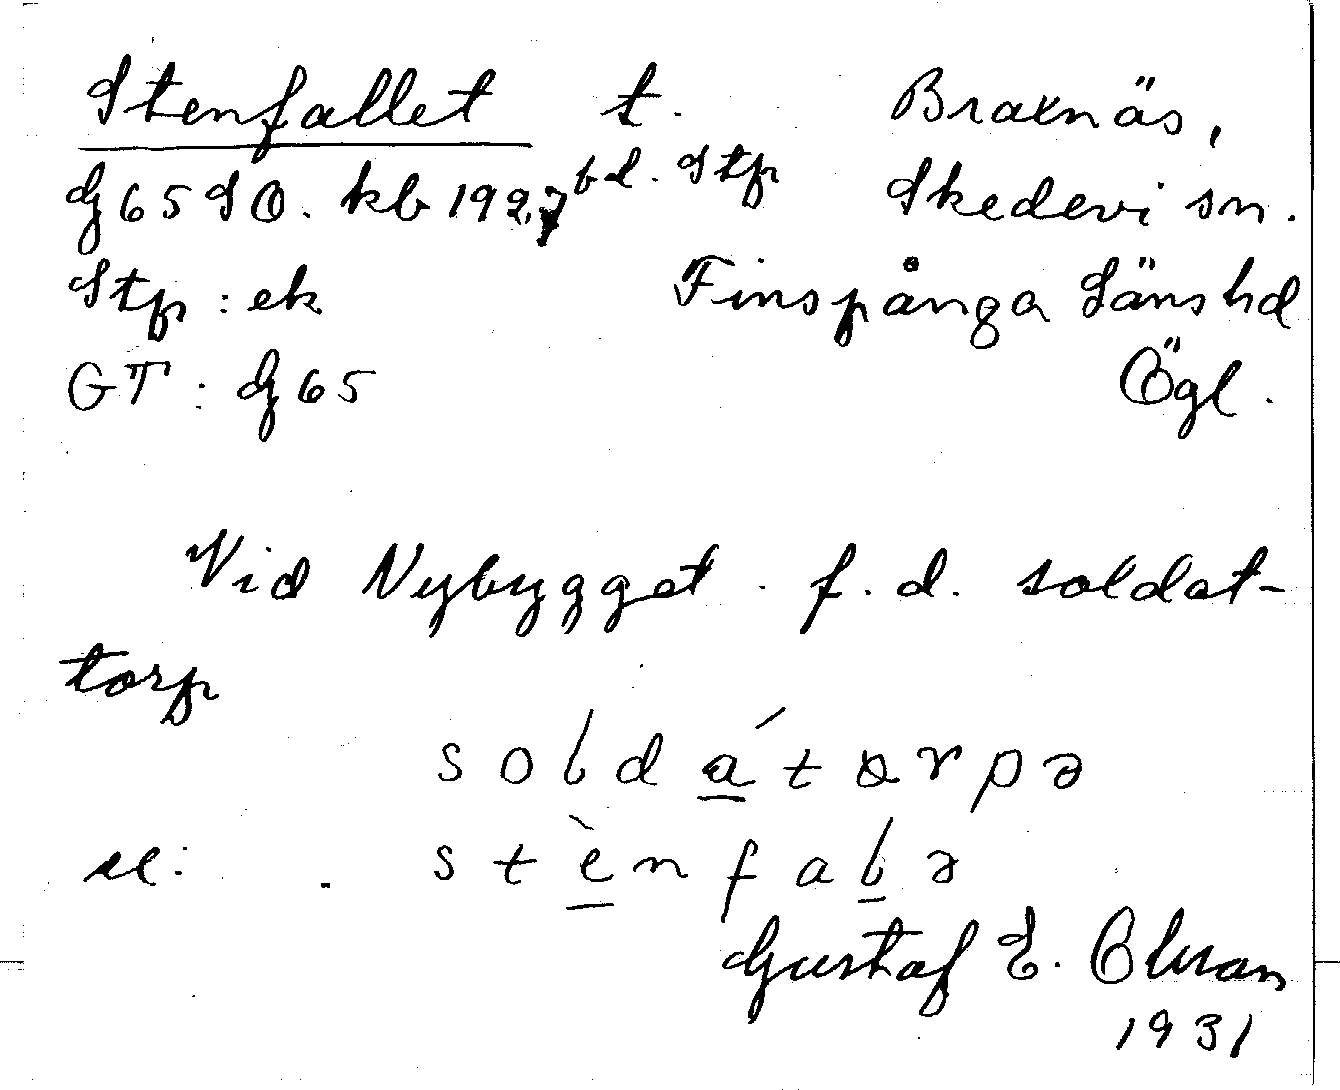 Stenfallet t. Braxnäs,
G 65 SO. kb 1927 bd. Stp Skedevi sn.
Stp : ek Finspånga Läns hd
GT : G 65 Ögl.
Vid Nybygget. f. d. soldat-
torp
soldátɷrpə
stènfalə
Gustaf E. Olman
1931